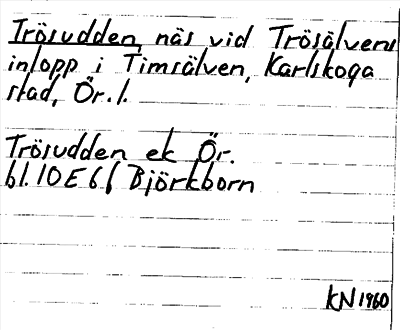 Trösudden, näs vid Trösälvens
inlopp i Timsälven, Karlskoga
stad, Ör. l.
Trösudden ek Ör.
bl. 10E6f Björkborn
KN 1960